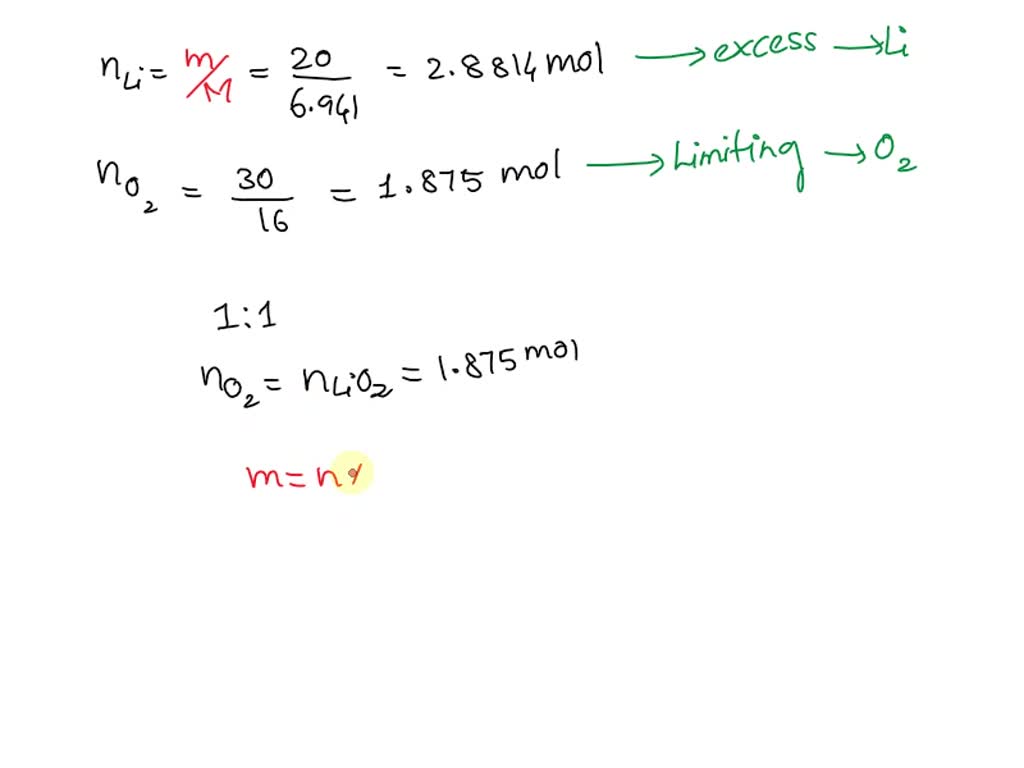 nLi = m/M = 20/6.941 = 2.8814 mol → excess → Li
nO₂ = 30/16 = 1.875 mol → Limiting → O₂
1:1
nO₂ = nLiO₂ = 1.875 mol
m = n